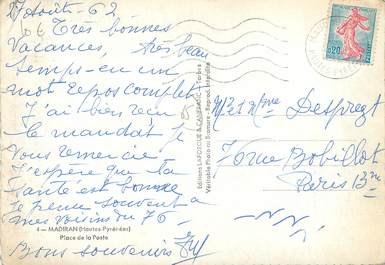 Août - 62
Très bonnes
Vacances, très beau
temps - en un
mot repos complet
J'ai bien reçu
le mandat
Vous remercie -
J'espère que la
santé est bonne
Je pense souvent à
mes voisins du 76 -
4 - MADIRAN (Hautes-Pyrénées)
Place de la Poste
Bons souvenirs
Editions LAPORGUE & CANTRANC - Tarbes
Véritable Photo au Bromure - Reprod. Interdite
0,20
Mr et Mme Despregt
76 rue Bobillot
Paris 13me